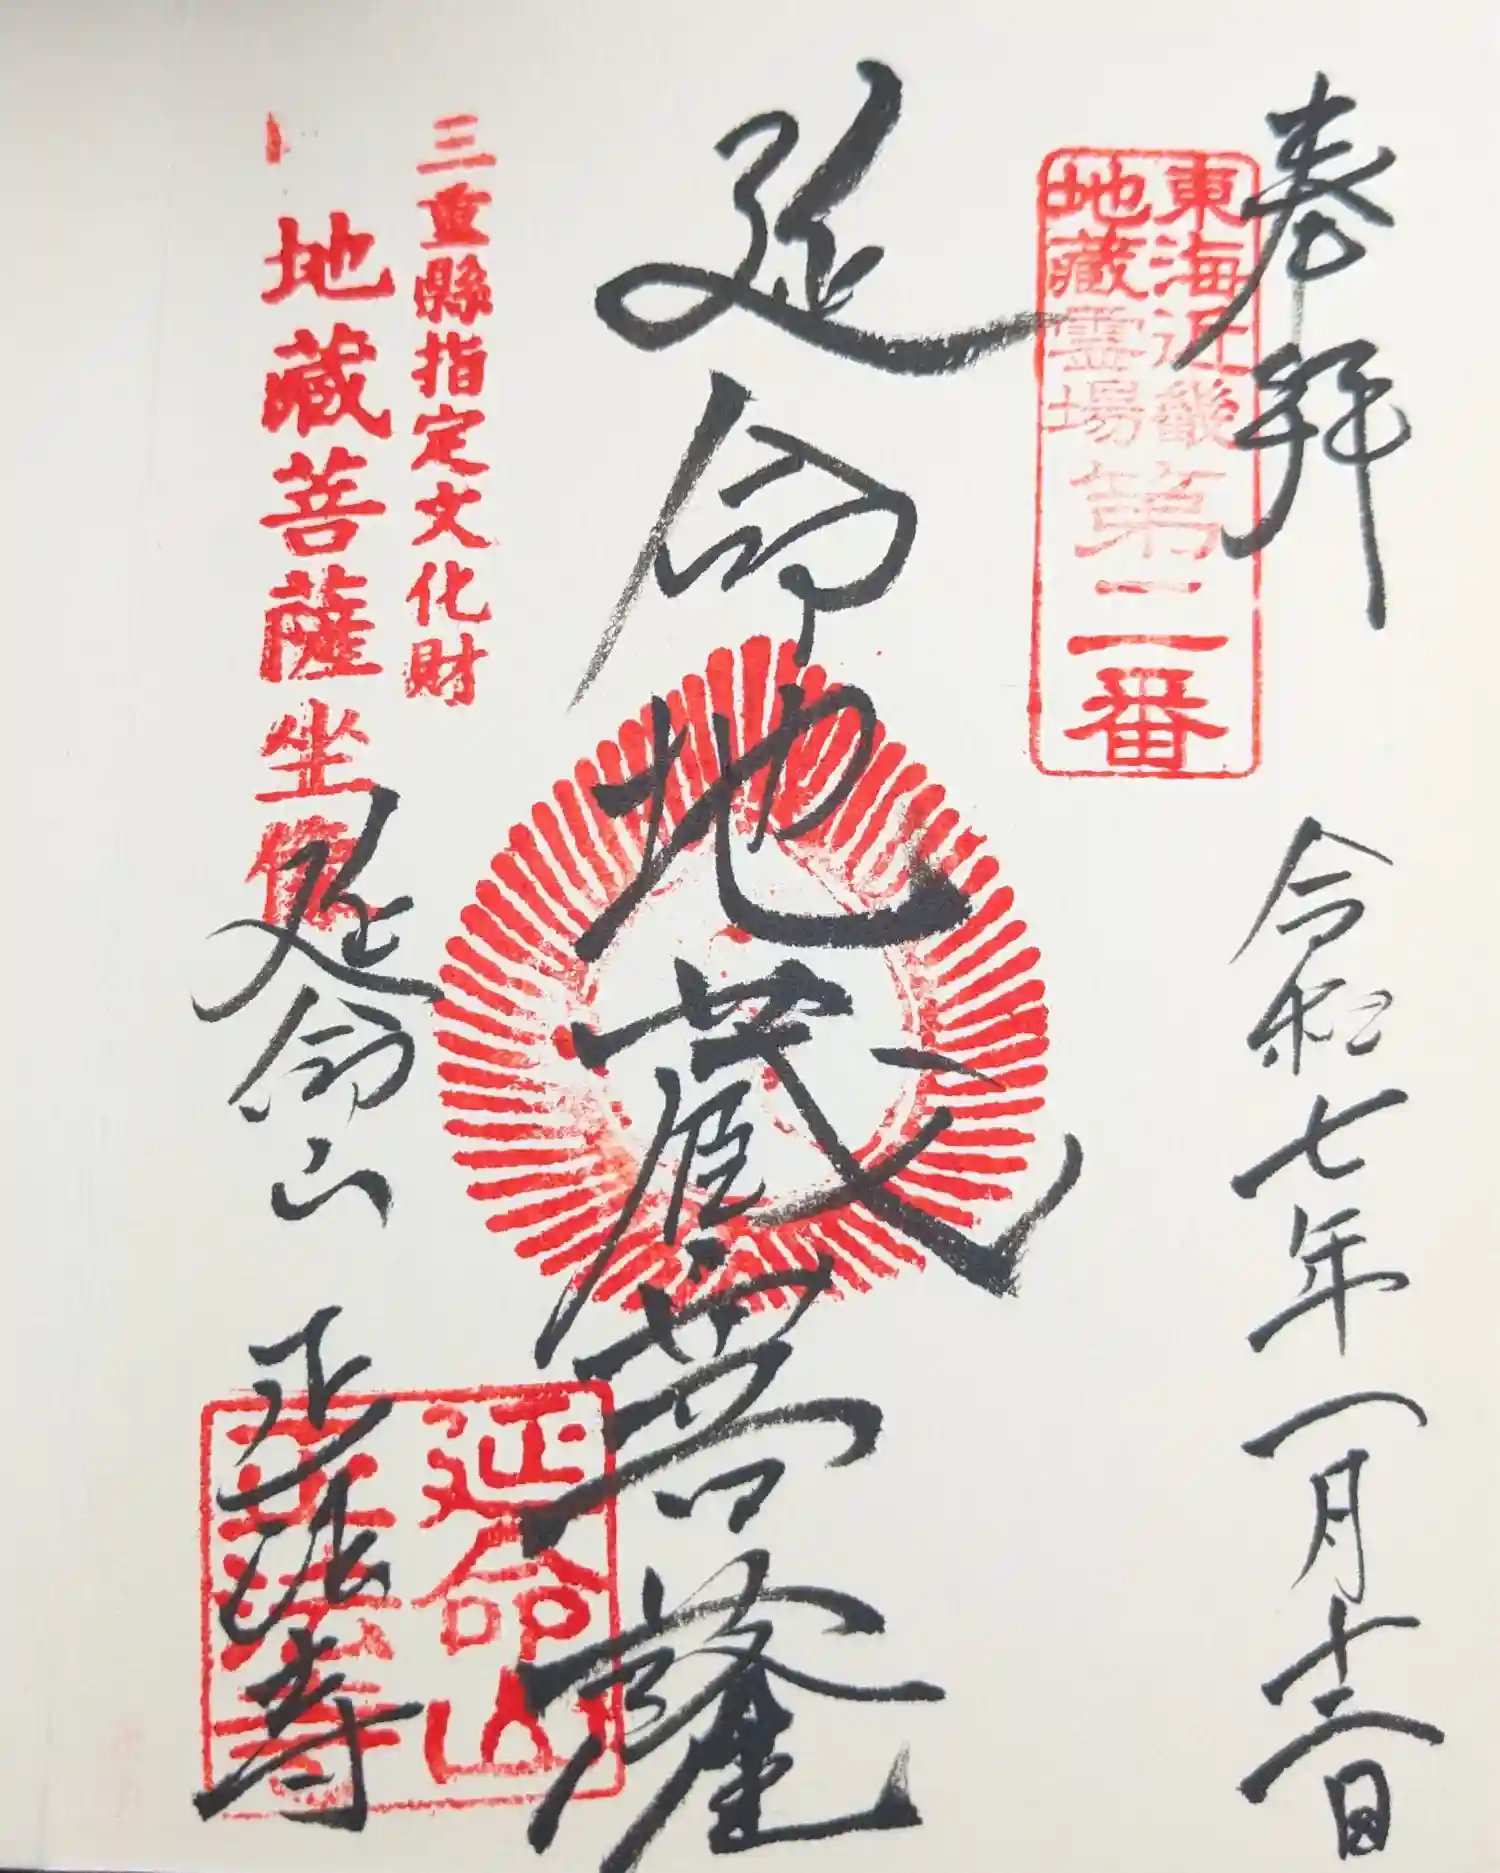 奉拝
令和七年一月十二日
東海近畿
地藏霊場
第二番
延命地蔵菩薩
三重縣指定文化財
地蔵菩薩坐像
延命山 正法寺
延命山
正法寺